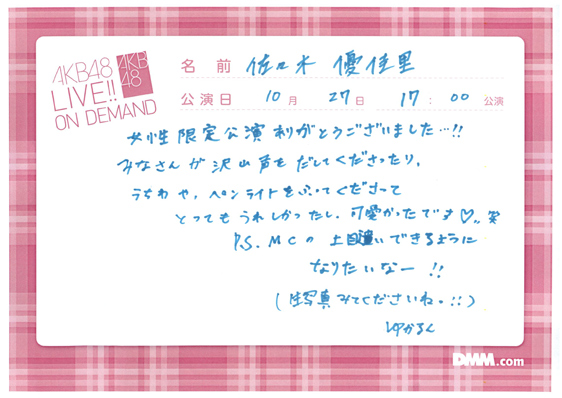 AKB48
LIVE!!
ON DEMAND
AKB
48
名前 佐々木 優佳里
公演日 10月 27日 17:00 公演
女性限定公演ありがとうございました…!!
みなさんが沢山声をだしてくださったり、
うちわや、ペンライトをふってくださって
とってもうれしかったし、可愛かったです♡,, 笑
P.S. MCの 土目遣いできるように
なりたいなー !!
(生写真みてくださいね。::)
ゆかるん
DMM.com